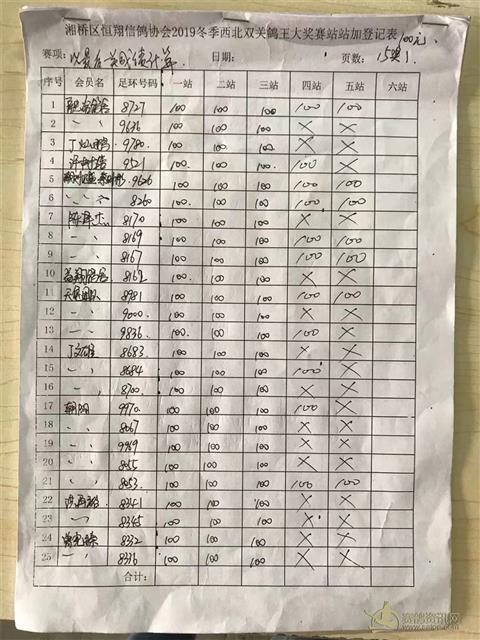 湘桥区恒翔信鸽协会2019冬季西北双关鸽王大奖赛站站加登记表 100元.
赛项: 以最后关成绩计算 日期: 页数: 15奖1
序号 会员名 足环号码 一站 二站 三站 四站 五站 六站
1 8727 100 100 100 100 100
2 〃 〃 9636 100 100 100 × ×
3 9780 100 100 100 × ×
4 9521 100 100 100 100 ×
5 9626 100 100 100 100 100
6 〃 〃 8260 100 100 100 100 100
7 8170 100 100 100 × ×
8 〃 〃 8169 100 100 100 100 100
9 〃 〃 8167 100 100 100 100 100
10 8162 100 100 100 × ×
11 8981 100 100 100 100 100
12 〃 〃 9000 100 100 100 × ×
13 〃 〃 9836 100 100 100 100 ×
14 8683 100 100 100 × ×
15 〃 〃 8684 100 100 100 100 ×
16 〃 〃 8700 100 100 100 × ×
17 朝阳 9970 100 100 100 100 ×
18 〃 〃 8067 100 100 100 × ×
19 〃 〃 9969 100 100 100 × ×
20 〃 〃 8055 100 100 100 × ×
21 〃 〃 8053 100 100 100 100 100
22 8341 100 100 100 × ×
23 〃 8345 100 100 100 × ×
24 8332 100 100 100 × ×
25 〃 〃 8336 100 100 100 × ×
合计:
赛鸽资讯网